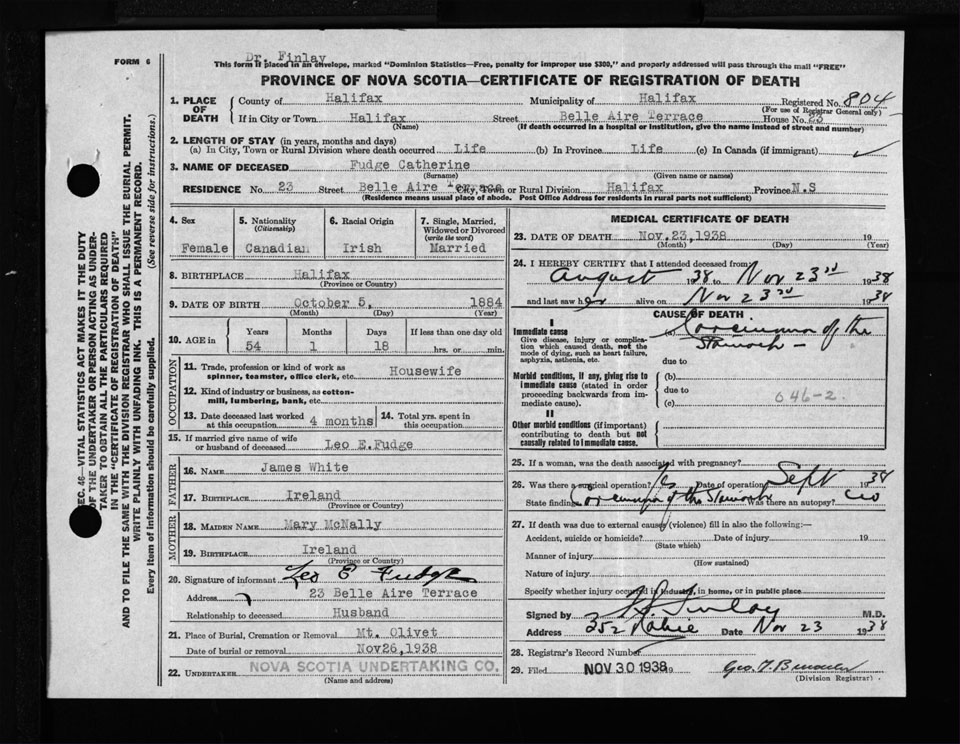 FORM 6
Dr. Finlay
This form if placed in an envelope, marked "Dominion Statistics—Free, penalty for improper use $300," and properly addressed will pass through the mail "FREE"
PROVINCE OF NOVA SCOTIA—CERTIFICATE OF REGISTRATION OF DEATH
SEC. 46—VITAL STATISTICS ACT MAKES IT THE DUTY
OF THE UNDERTAKER OR PERSON ACTING AS UNDER-
TAKER TO OBTAIN ALL THE PARTICULARS REQUIRED
IN THE "CERTIFICATE OF REGISTRATION OF DEATH"
AND TO FILE THE SAME WITH THE DIVISION REGISTRAR WHO SHALL ISSUE THE BURIAL PERMIT.
WRITE PLAINLY WITH UNFADING INK. THIS IS A PERMANENT RECORD.
Every item of information should be carefully supplied. (See reverse side for instructions.)
1. PLACE OF DEATH County of Halifax Municipality of Halifax Registered No. 804
(For use of Registrar General only)
If in City or Town Halifax Street Belle Aire Terrace House No. 23
(Name) (If death occurred in a hospital or institution, give the name instead of street and number)
2. LENGTH OF STAY (in years, months and days)
(a) In City, Town or Rural Division where death occurred Life (b) In Province Life (c) In Canada (if immigrant)
3. NAME OF DECEASED Fudge Catherine
(Surname) (Given name or names)
RESIDENCE No. 23 Street Belle Aire Terrace City, Town or Rural Division Halifax Province N.S
(Residence means usual place of abode. Post Office Address for residents in rural parts not sufficient)
4. Sex 5. Nationality (Citizenship) 6. Racial Origin 7. Single, Married, Widowed or Divorced (write the word)
Female Canadian Irish Married
8. BIRTHPLACE Halifax
(Province or Country)
9. DATE OF BIRTH October 5, 1884
(Month) (Day) (Year)
10. AGE in Years Months Days If less than one day old
54 1 18 hrs. or min.
OCCUPATION
11. Trade, profession or kind of work as spinner, teamster, office clerk, etc. Housewife
12. Kind of industry or business, as cotton-mill, lumbering, bank, etc.
13. Date deceased last worked at this occupation 4 months 14. Total yrs. spent in this occupation
15. If married give name of wife or husband of deceased Leo E.Fudge
FATHER
16. NAME James White
17. BIRTHPLACE Ireland
(Province or Country)
MOTHER
18. MAIDEN NAME Mary McNally
19. BIRTHPLACE Ireland
(Province or Country)
20. Signature of informant Leo E Fudge
Address 23 Belle Aire Terrace
Relationship to deceased Husband
21. Place of Burial, Cremation or Removal Mt. Olivet
Date of burial or removal Nov26,1938
22. UNDERTAKER NOVA SCOTIA UNDERTAKING CO.
(Name and address)
MEDICAL CERTIFICATE OF DEATH
23. DATE OF DEATH Nov.23,1938 19
(Month) (Day) (Year)
24. I HEREBY CERTIFY that I attended deceased from
August 1938 to Nov 23rd 1938
and last saw her alive on Nov 23rd 1938
CAUSE OF DEATH
I
Immediate cause (a) Carcinoma of the
Give disease, injury or complica- Stomach
tion which caused death, not the
mode of dying, such as heart failure,
asphyxia, asthenia, etc. due to
Morbid conditions, if any, giving rise to (b)
immediate cause (stated in order due to
proceeding backwards from im- (c) 046-2
mediate cause).
II
Other morbid conditions (if important)
contributing to death but not
causally related to immediate cause.
25. If a woman, was the death associated with pregnancy?
26. Was there a surgical operation? Yes Date of operation Sept 1938
State finding Carcinoma of the Stomach Was there an autopsy?
27. If death was due to external causes (violence) fill in also the following:—
Accident, suicide or homicide? Date of injury 19
(State which)
Manner of injury
(How sustained)
Nature of injury
Specify whether injury occurred in industry, in home, or in public place
Signed by Finlay M.D.
Address 252 Date Nov 23 1938
28. Registrar's Record Number
29. Filed NOV 30 1938 19
(Division Registrar)